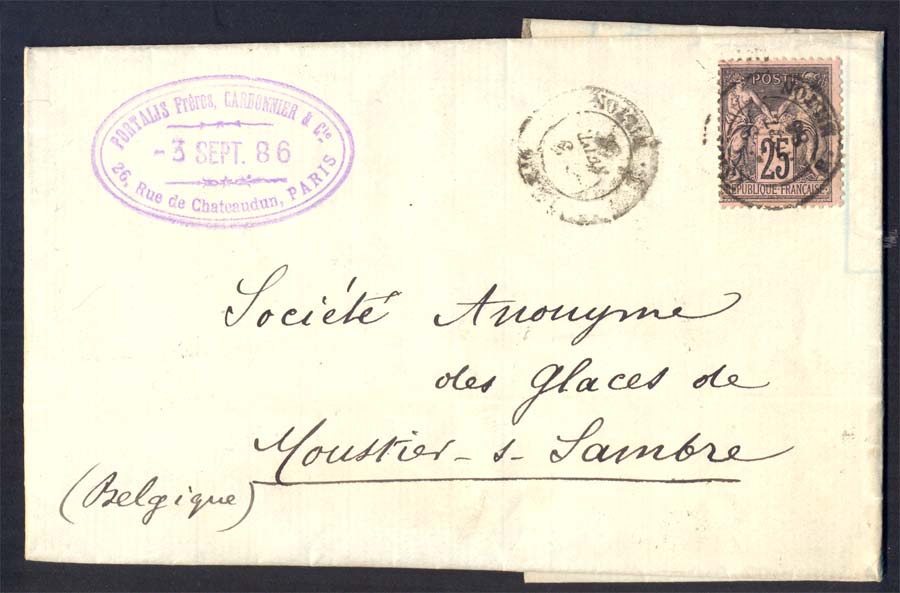 PORTALIS Frères, CARBONNIER & Cie
- 3 SEPT. 86
26, Rue de Chateaudun, PARIS
POST
25
REPUBLIQUE FRANÇAISE
Société Anonyme
des Glaces de
Moustier - s - Sambre
(Belgique)